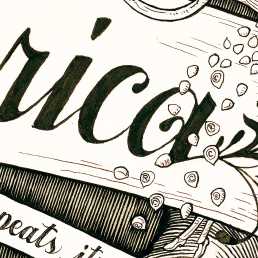 rica
peats it